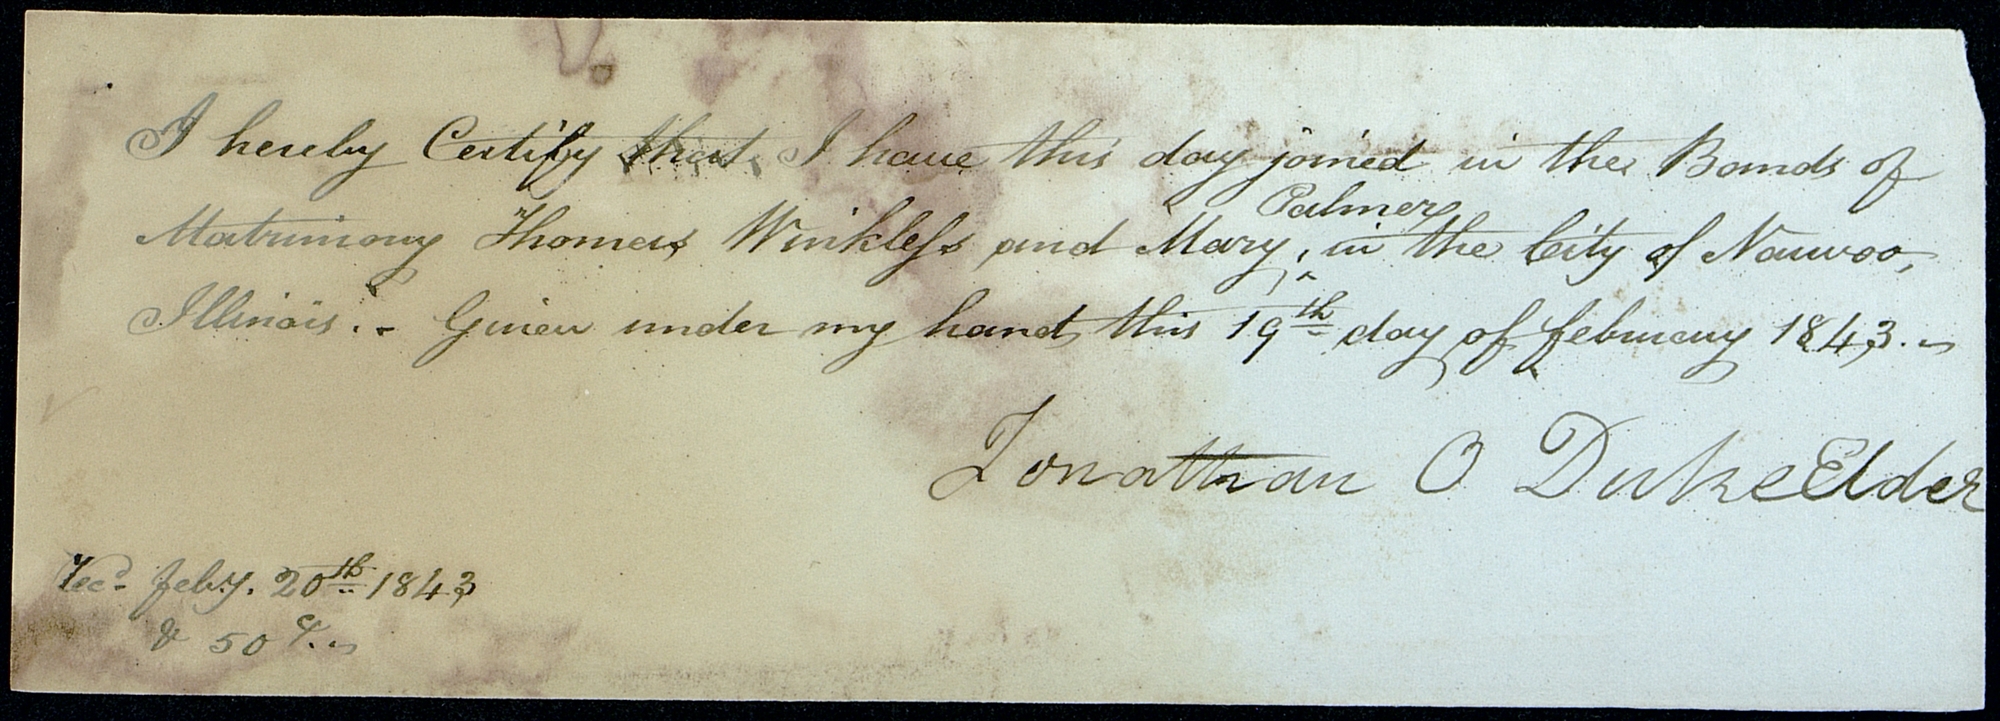 I hereby Certify that I have this day joined in the Bonds of
Matrimony Thomas Winkless and Mary, ^Palmer in the City of Nauvoo,
Illinois. - Given under my hand this 19th day of february 1843. -
Jonathan O Duke Elder
Recd. feby. 20th 1843
& 50 c. -